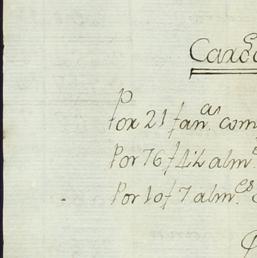 Por 21 fan.as com
Por 76 f 4½ alm.s
Por 10 f 7 alm.es